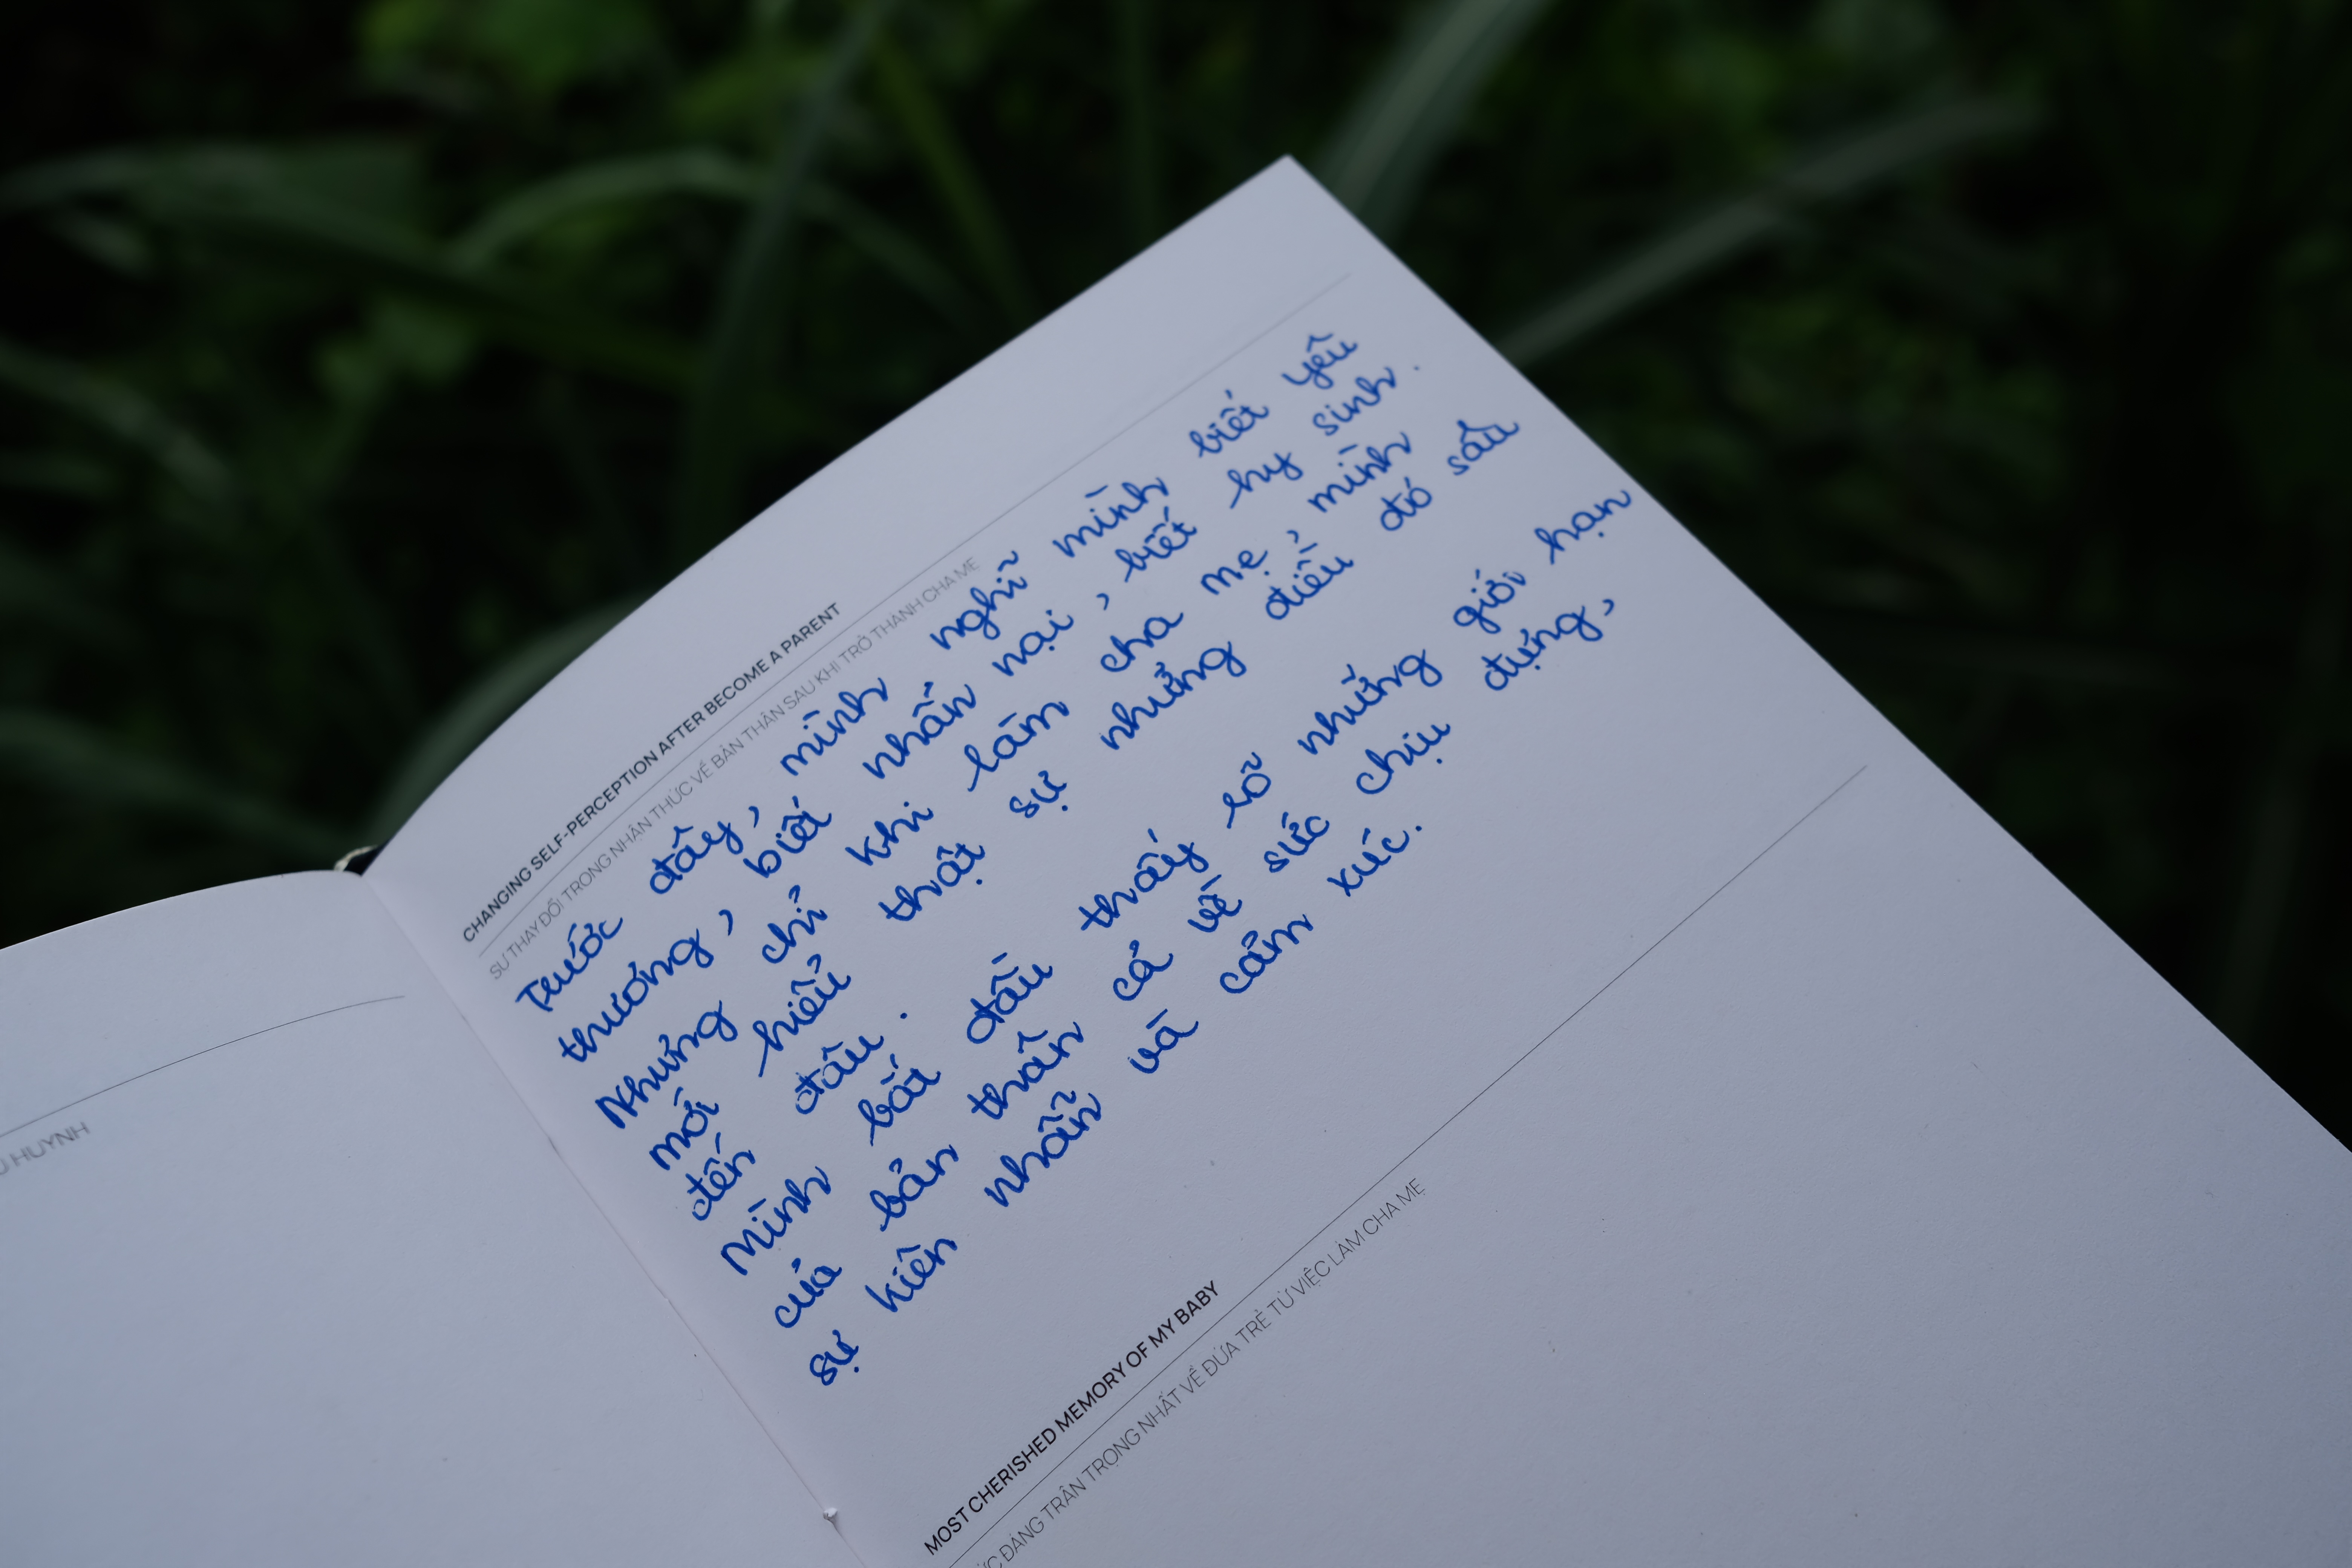 HUYNH
CHANGING SELF-PERCEPTION AFTER BECOME A PARENT
SỰ THAY ĐỔI TRONG NHẬN THỨC VỀ BẢN THÂN SAU KHI TRỞ THÀNH CHA MẸ
Trước đây, mình nghĩ mình biết yêu
thương, biết nhẫn nại, biết hy sinh.
Nhưng chỉ khi làm cha mẹ, mình
mới hiểu thật sự những điều đó sâu
đến đâu.
Mình bắt đầu thấy rõ những giới hạn
của bản thân cả về sức chịu đựng,
sự kiên nhẫn và cảm xúc.
MOST CHERISHED MEMORY OF MY BABY
ĐÁNG TRÂN TRỌNG NHẤT VỀ ĐỨA TRẺ TỪ VIỆC LÀM CHA MẸ